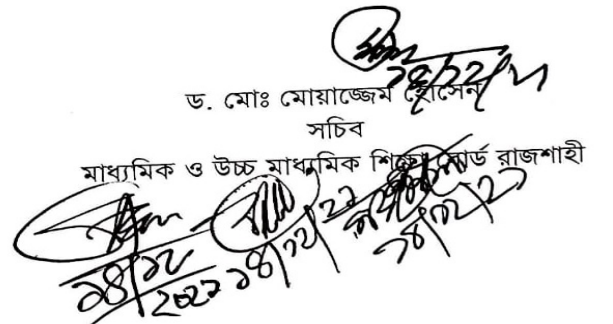 ১৪/১২/২১
ড. মোঃ মোয়াজ্জেম হোসেন
সচিব
মাধ্যমিক ও উচ্চ মাধ্যমিক শিক্ষা বোর্ড রাজশাহী
১৪/১২/২১
১৪/১২/২১
১৪/১২
২০২১